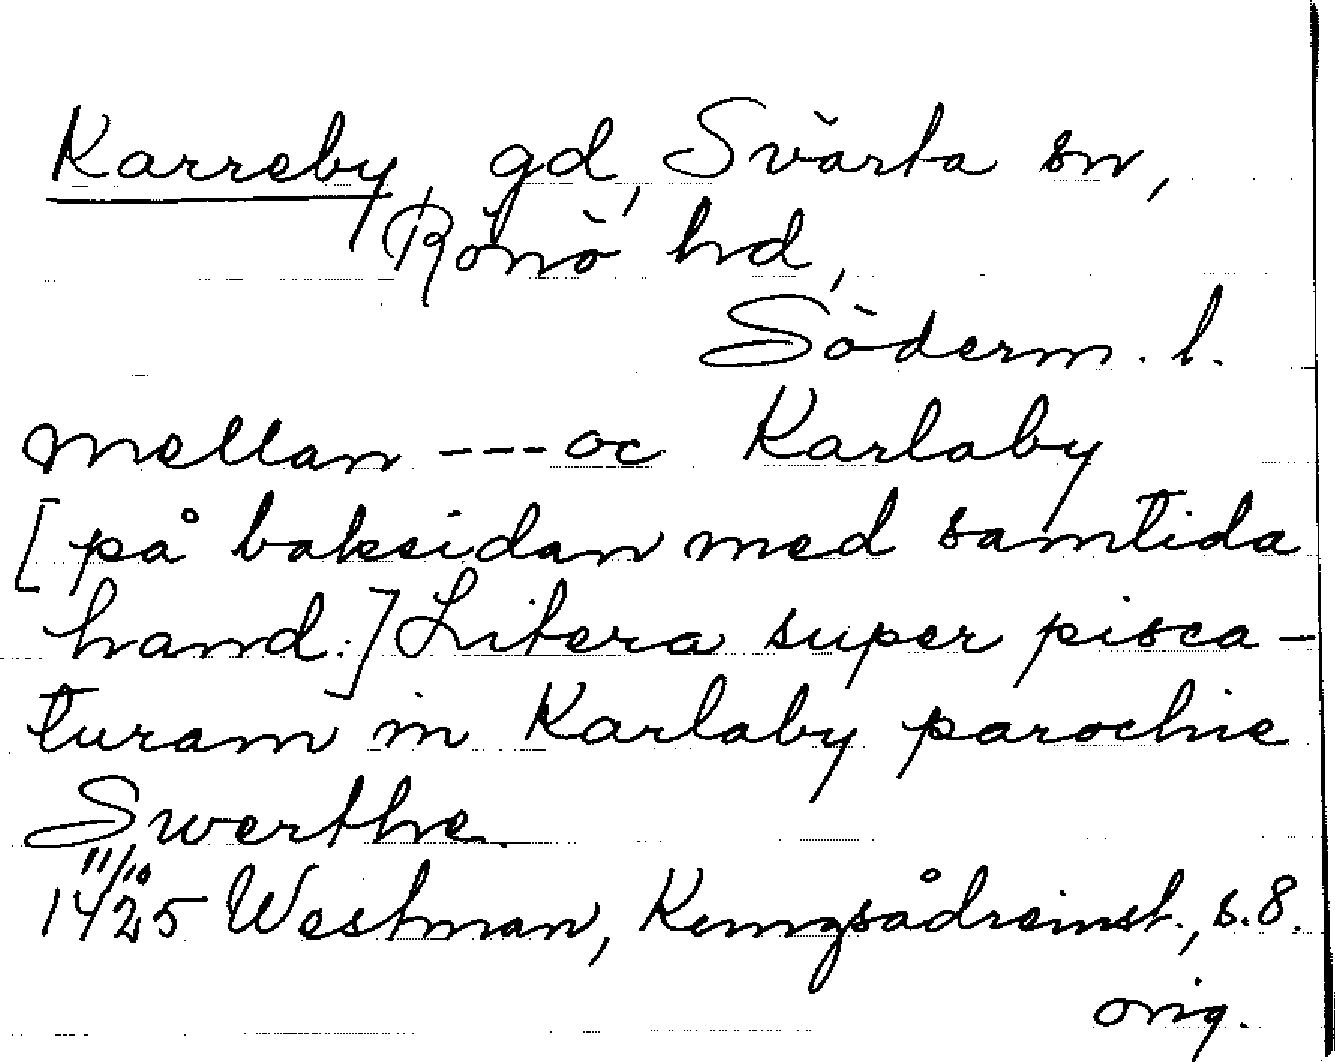 Karreby, gd, Svärta sn,
Rönö hd,
Söderm. l.
mellan --- oc Karlaby
[på baksidan med samtida
hand:] Litera super pisca-
turam in Karlaby parochie
Swerthe.
11/10
1425 Westman, Kungsådreinst., s. 8.
orig.